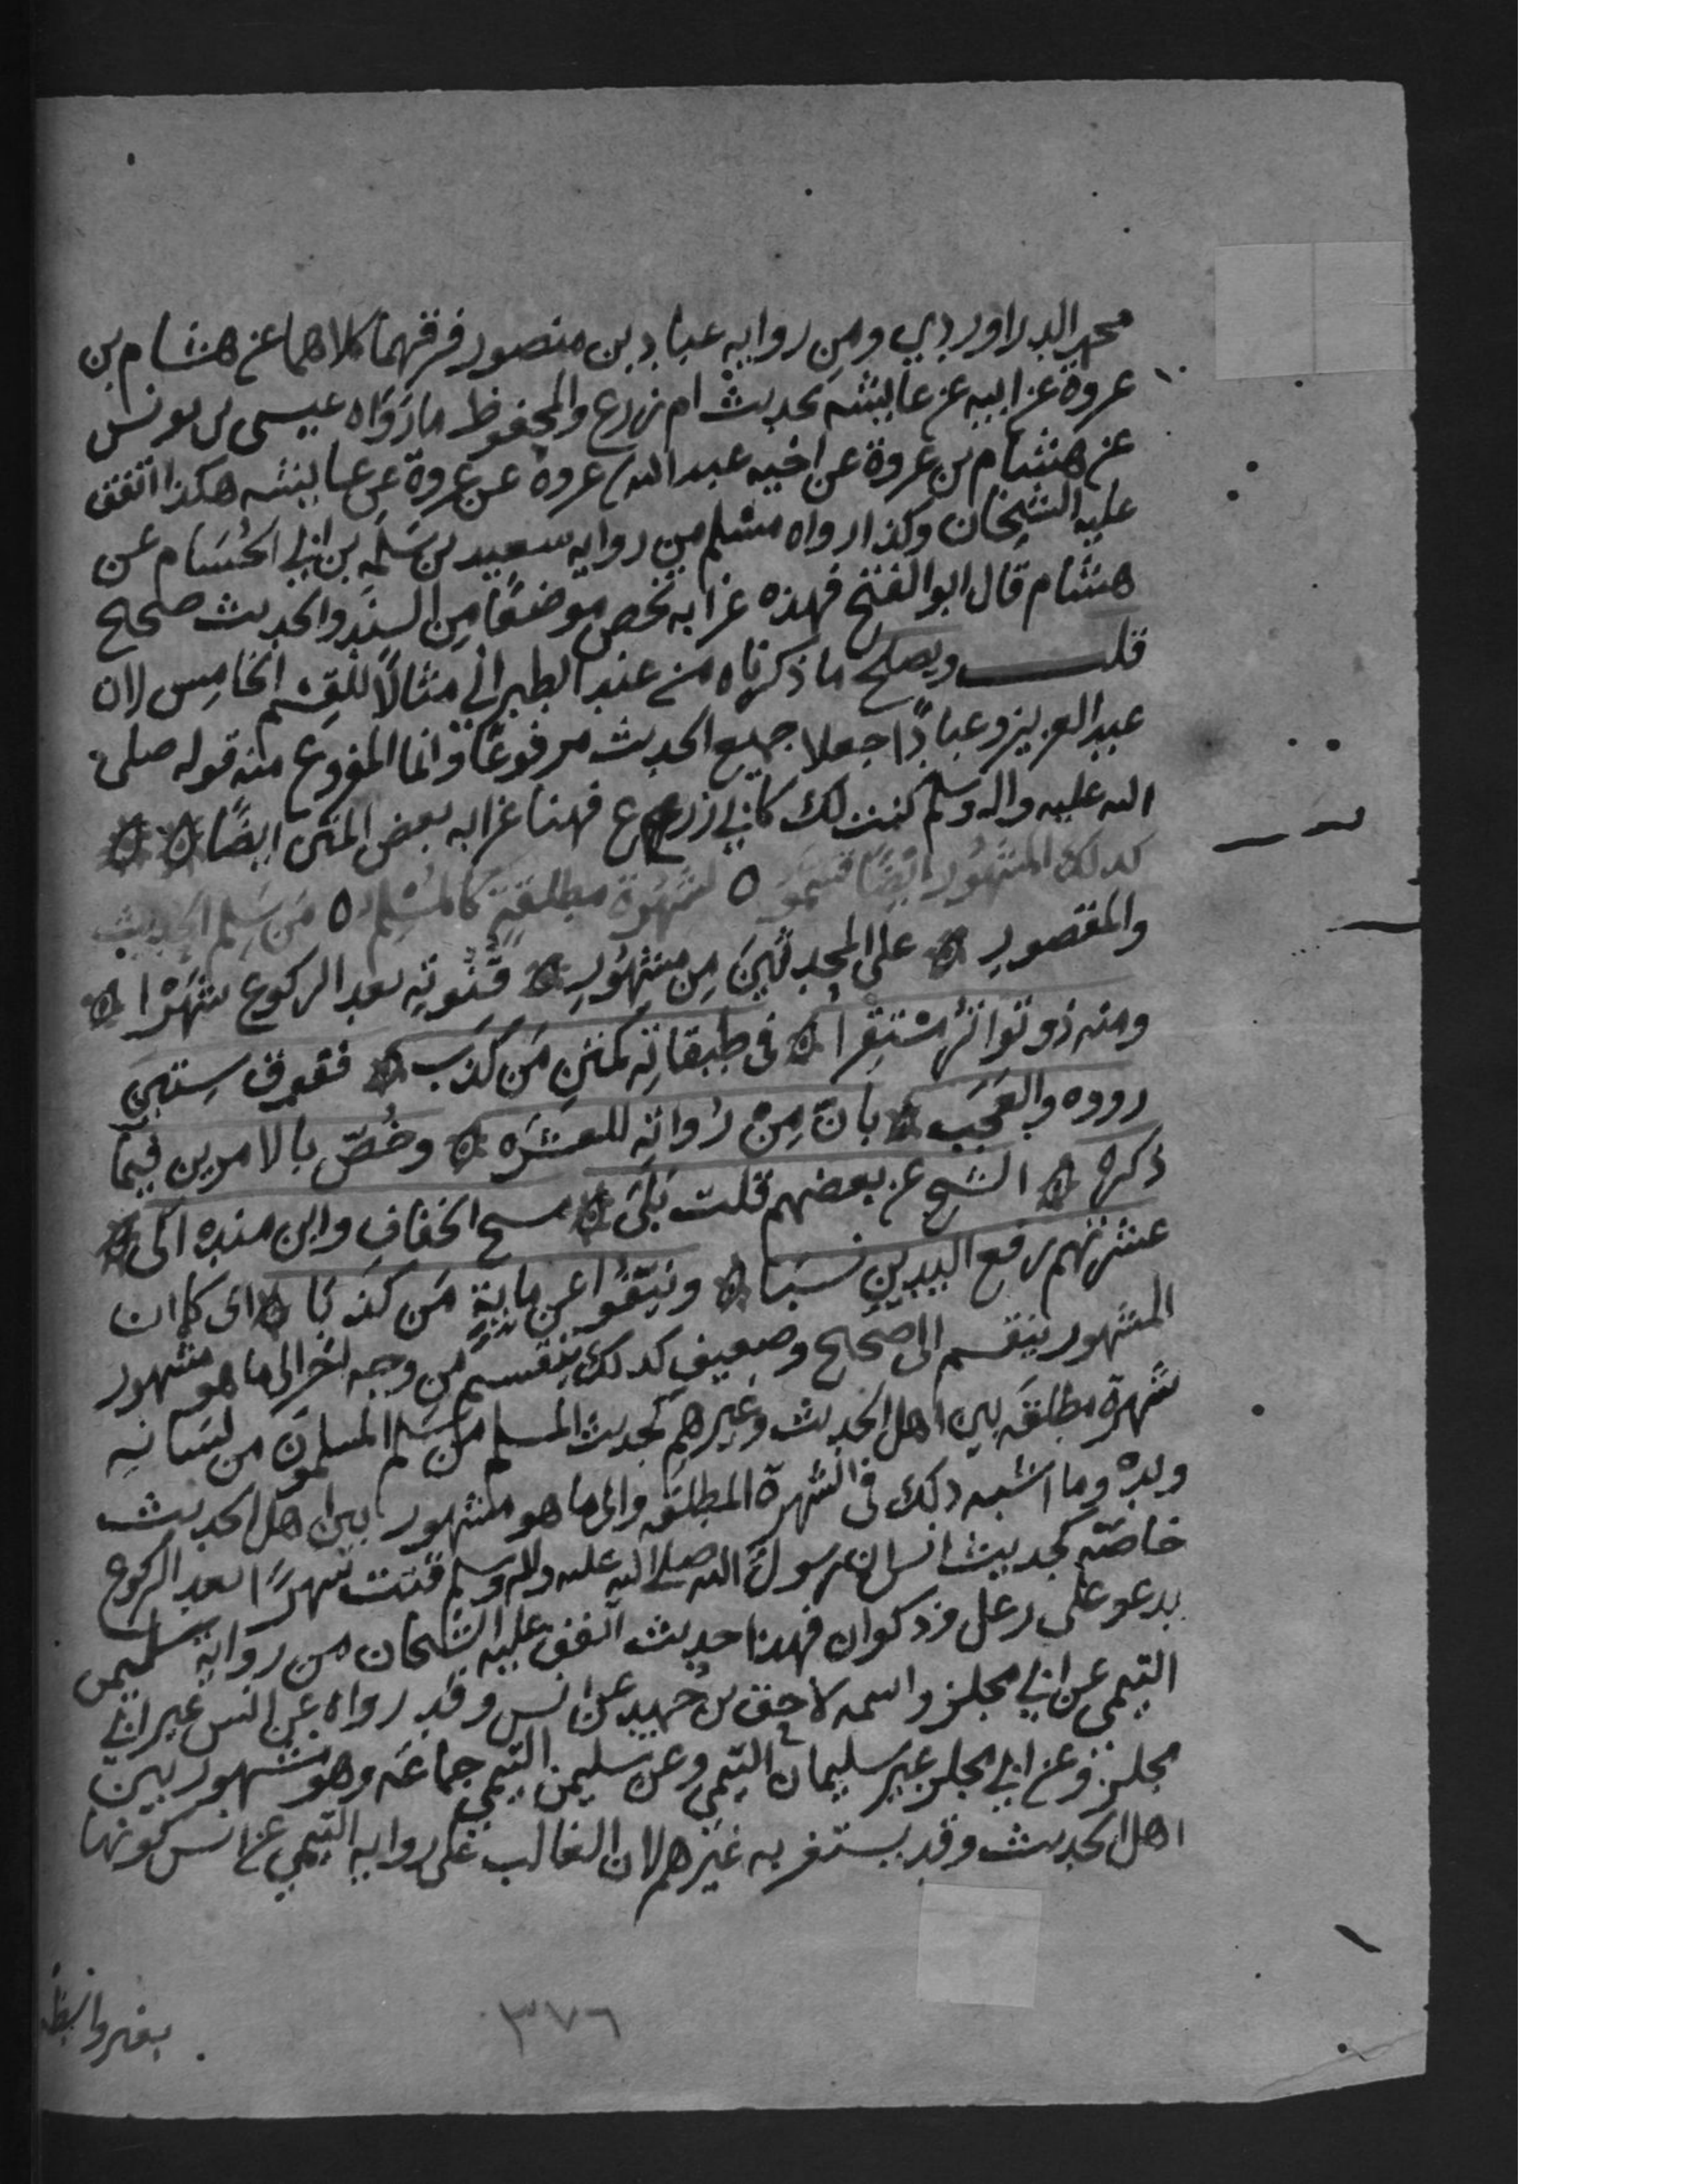 محمد الدراوردي ومن روايه عباد بن منصور فرقهما كلاهما عن هشام بن
عروة عن ابيه عن عايشه بحديث ام زرع والمحفوظ ما رواه عيسى بن يونس
عن هشام بن عروة عن اخيه عبد الله بن عروه عن عروة عن عايشه هكذا اتفق
عليه الشيخان وكذا رواه مسلم من روايه سعيد بن سلمه بن ابي الحسام عن
هشام قال ابو الفتح فهذه غرابه تخص موضعًا من السند والحديث صحيح
قلت ويصلح ما ذكرناه من عند الطبراني مثالًا للقسم الخامس لان
عبد العزيز وعبادًا جعلا جميع الحديث مرفوعًا وانما المرفوع منه قوله صلى
الله عليه واله وسلم كنت لك كابي زرع فهذا غرابه بعض المتن ايضًا
كذلك المشهور ايضًا قسموا لشهرة مطلقةٍ كالمسلم من سلم الحديث
والمقصور على المحدثين من مشهور قنوته بعد الركوع شهرا
ومنه ذو تواتر مستقرا في طبقاته كمتن من كذب ففوق ستين
رووه والعجب بان من رواته للعشره وخُصّ بالامرين فيما
ذكره الشيخ عن بعضهم قلت بلى مسح الخفاف وابن منده الى
عشرتهم رفع اليدين نسبا ونيفوا عن ماية من كذبا اي كما ان
المشهور ينقسم الى صحيح وضعيف كذلك ينقسم من وجه اخر الى ما هو مشهور
شهرة مطلقه بين اهل الحديث وغيرهم كحديث المسلم من سلم المسلمون من لسانه
ويده وما اشبه ذلك في الشهرة المطلقه والى ما هو مشهور بين اهل الحديث
خاصّه كحديث انس ان رسول الله صلى الله عليه واله وسلم قنت شهرًا بعد الركوع
يدعو على رعل وذكوان فهذا حديث اتفق عليه الشيخان من رواية سليمن
التيمي عن ابي مجلز واسمه لاحق بن حميد عن انس وقد رواه عن انس غير ابي
مجلز وعن ابي مجلز غير سليمان التيمي وعن سليمن التيمي جماعه وهو مشهور بين
اهل الحديث وقد يستغربه غيرهم لان الغالب على روايه التيمي عن انس كونها
بغير واسطة
٣٧٦